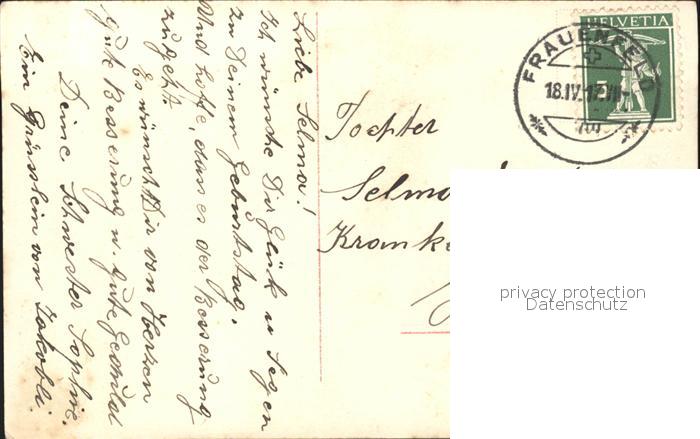 Liebe Selma!
Ich wünsche Dir Glück u Segen
zu Deinem Geburtstag.
Und hoffe, dass es der Besserung
zugeht.
Es wünscht Dir von Herzen
Gute Besserung u. gute Geduld
Deine Schwester Sophie.
Ein Grüsslein von Jakobli.
Tochter
Selma
Kranke
HELVETIA
5
FRAUENFELD
18.IV.17.VII-
privacy protection
Datenschutz